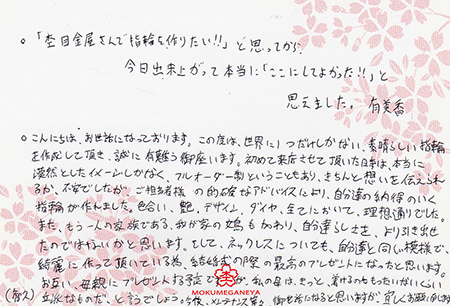 ○「杢目金屋さんで指輪を作りたい!!」と思ってから
今日出来上がって本当に「ここにしてよかった!!」と
思えました。 有美香
○こんにちは、お世話になっております。この度は、世界に1つだけしかない、素晴らしい指輪
を作成して頂き、誠に有難う御座います。初めて来店させて頂いた日は、本当に
漠然としたイメージしかなく、フルオーダー制ということもあり、きちんと想いを伝えられ
るか、不安でしたが、ご担当者様の的確なアドバイスにより、自分達の納得のいく
指輪が作れました。色合い、艶、デザイン、ダイヤ、全てにおいて、理想通りでした。
また、もう一人の家族である、我が家の文鳥も加わり、自分達らしさを、より引き出せ
たのではないかと思います。そして、ネックレスについても、自分達と同じ模様で、
綺麗に作って頂いている為、結婚式の際の最高のプレゼントになったと思います。
お互い、母親にプレゼントする予定ですが、私の母は、きっと、着けるのももったいないくらい
なものだ、と言うでしょう。今後、メンテナンス等で御世話になると思いますが、宜しくお願い致し
MOKUMEGANEYA